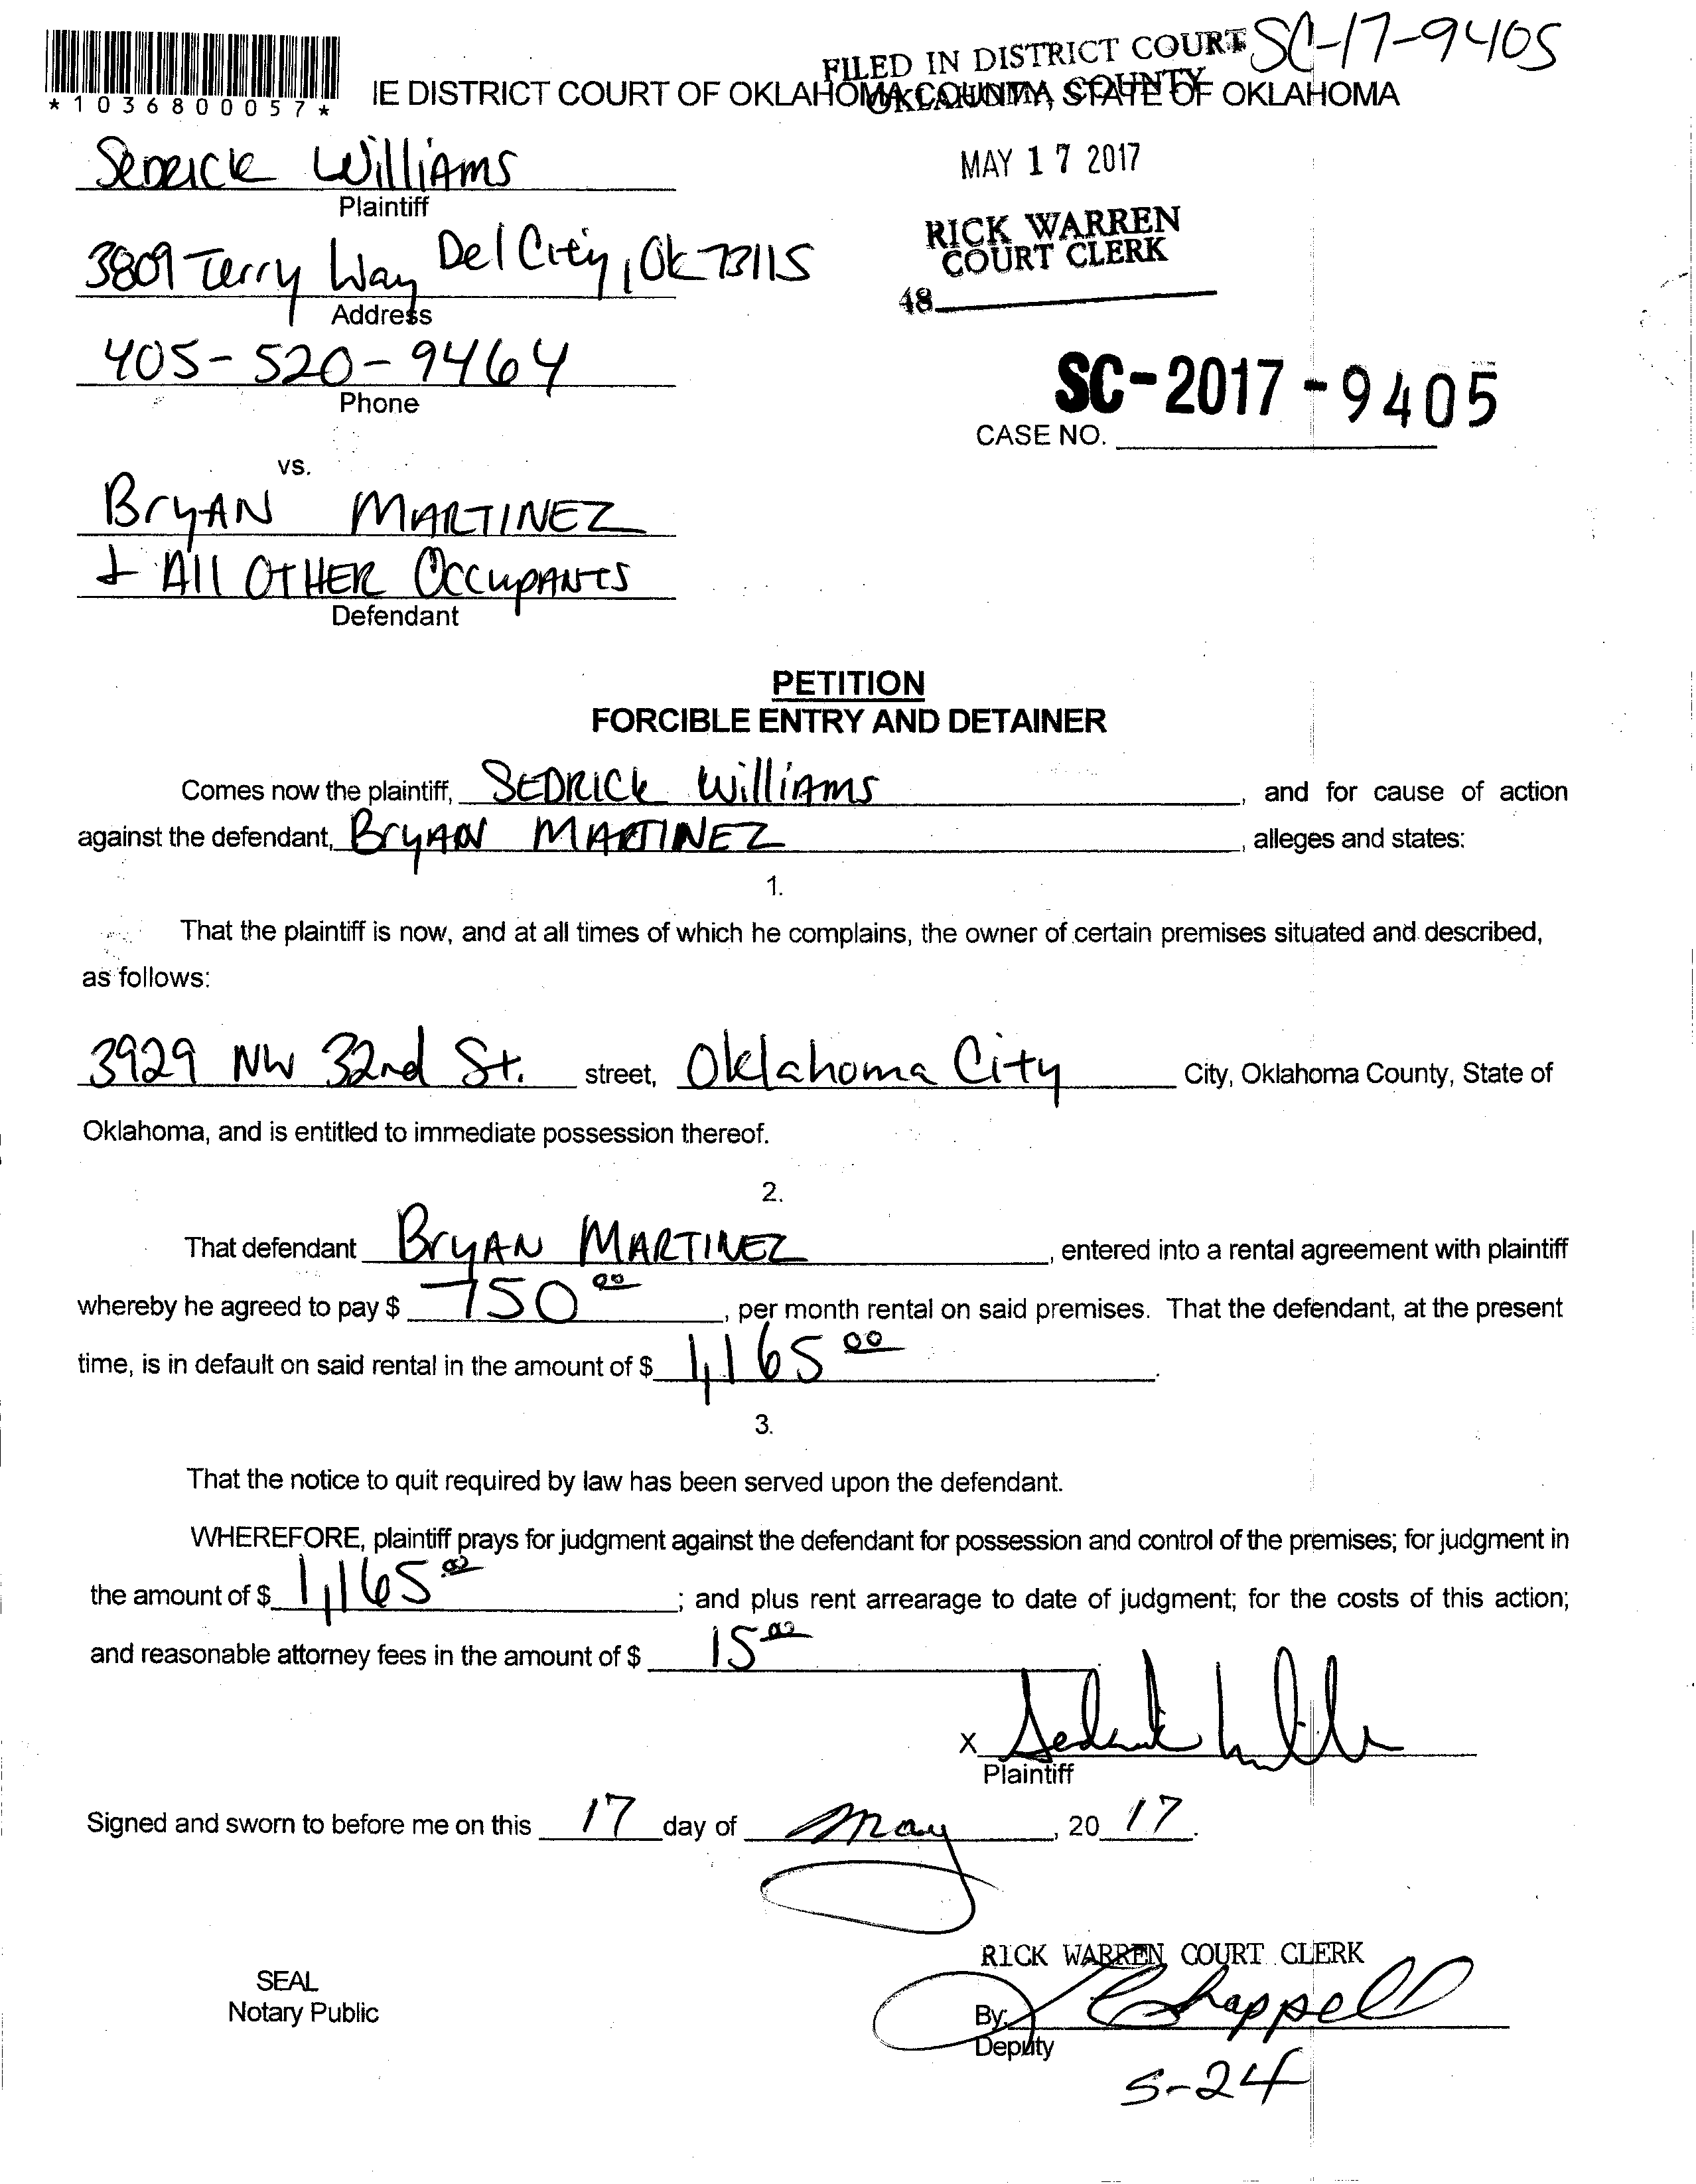 SC-17-9405
FILED IN DISTRICT COURT
OKLAHOMA COUNTY
*1036800057*
IE DISTRICT COURT OF OKLAHOMA COUNTY, STATE OF OKLAHOMA
SEDRICK WilliAms
Plaintiff
MAY 17 2017
3809 Terry Way Del City, Ok 73115
Address
RICK WARREN
COURT CLERK
48
405-520-9464
Phone
SC-2017-9405
CASE NO.
vs.
BryAN MARTINEZ
+ All OTHER OccupANTS
Defendant
PETITION
FORCIBLE ENTRY AND DETAINER
Comes now the plaintiff, SEDRICK WilliAms, and for cause of action
against the defendant, BryAN MARTINEZ, alleges and states:
1.
That the plaintiff is now, and at all times of which he complains, the owner of certain premises situated and described,
as follows:
3929 NW 32nd St. street, Oklahoma City City, Oklahoma County, State of
Oklahoma, and is entitled to immediate possession thereof.
2.
That defendant BryAN MARTINEZ, entered into a rental agreement with plaintiff
whereby he agreed to pay $ 750 00, per month rental on said premises. That the defendant, at the present
time, is in default on said rental in the amount of $ 1,165 00.
3.
That the notice to quit required by law has been served upon the defendant.
WHEREFORE, plaintiff prays for judgment against the defendant for possession and control of the premises; for judgment in
the amount of $ 1,165 00; and plus rent arrearage to date of judgment; for the costs of this action;
and reasonable attorney fees in the amount of $ 15 00
X Sedrick Williams
Plaintiff
Signed and sworn to before me on this 17 day of May, 20 17.
RICK WARREN COURT CLERK
SEAL
Notary Public
By: Chappell
Deputy
5-24